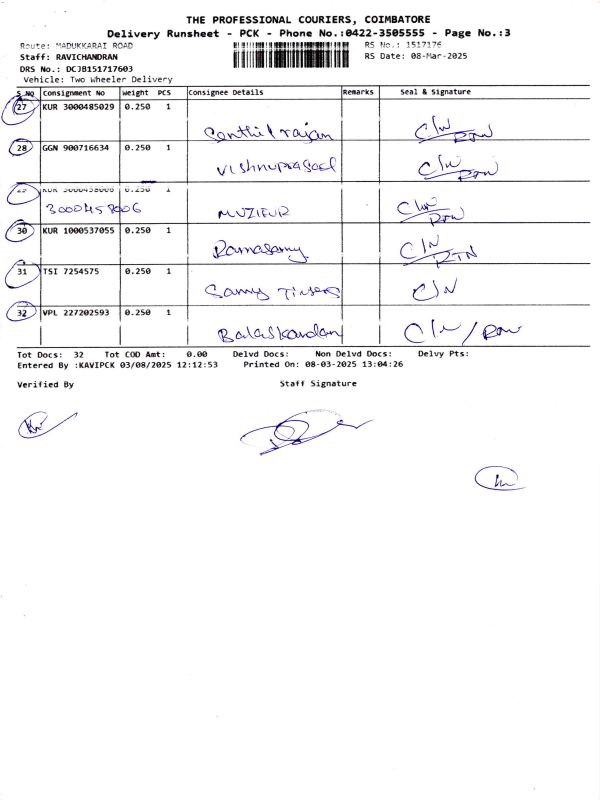 THE PROFESSIONAL COURIERS, COIMBATORE
Delivery Runsheet - PCK - Phone No.:0422-3505555 - Page No.:3
Route: MADUKKARAI ROAD RS No.: 1517176
Staff: RAVICHANDRAN RS Date: 08-Mar-2025
DRS No.: DCJB151717603
Vehicle: Two Wheeler Delivery
S.No Consignment No Weight PCS Consignee Details Remarks Seal & Signature
27 KUR 3000485029 0.250 1
Senthil rajan C/N RTN
28 GGN 900716634 0.250 1
Vishnuprasad C/N RTN
29 KUR 3000458006 0.250 1
3000458006 MUZIFUR C/N RTN
30 KUR 1000537055 0.250 1
Ramasamy C/N RTN
31 TSI 7254575 0.250 1
Samy C/N
32 VPL 227202593 0.250 1
Balaskandan C/N / RTN
Tot Docs: 32 Tot COD Amt: 0.00 Delvd Docs: Non Delvd Docs: Delvy Pts:
Entered By :KAVIPCK 03/08/2025 12:12:53 Printed On: 08-03-2025 13:04:26
Verified By Staff Signature